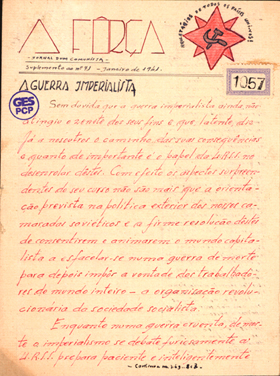 A FÔRÇA
JORNAL DUM COMUNISTA
Suplemento ao nº 31 - Janeiro de 1941
1057
A GUERRA IMPERIALISTA
GES
PCP
Sem duvida que a guerra imperialista ainda não
atingiu o zenite dos seus fins e que, latente, dis-
põe a nosotros o caminho das suas consequências
e quanto de importante é o papel da U.R.S.S. no
desenrolar destes. Com efeito os aspectos surpreen-
dentes do seu curso não são mais que a orienta-
ção prevista na politica exterior dos nossos ca-
maradas soviéticos e a firme resolução destes
de consentirem e animarem o mundo capita-
lista a esfacelar-se numa guerra de morte
para depois impôr a vontade dos trabalhado-
res do mundo inteiro - a organização revolu-
cionária da sociedade socialista.
Enquanto numa guerra cruenta, de mor-
te o imperialismo se debate furiosamente a
U.R.S.S. prepara paciente e inteligentemente
- Continua na pág.